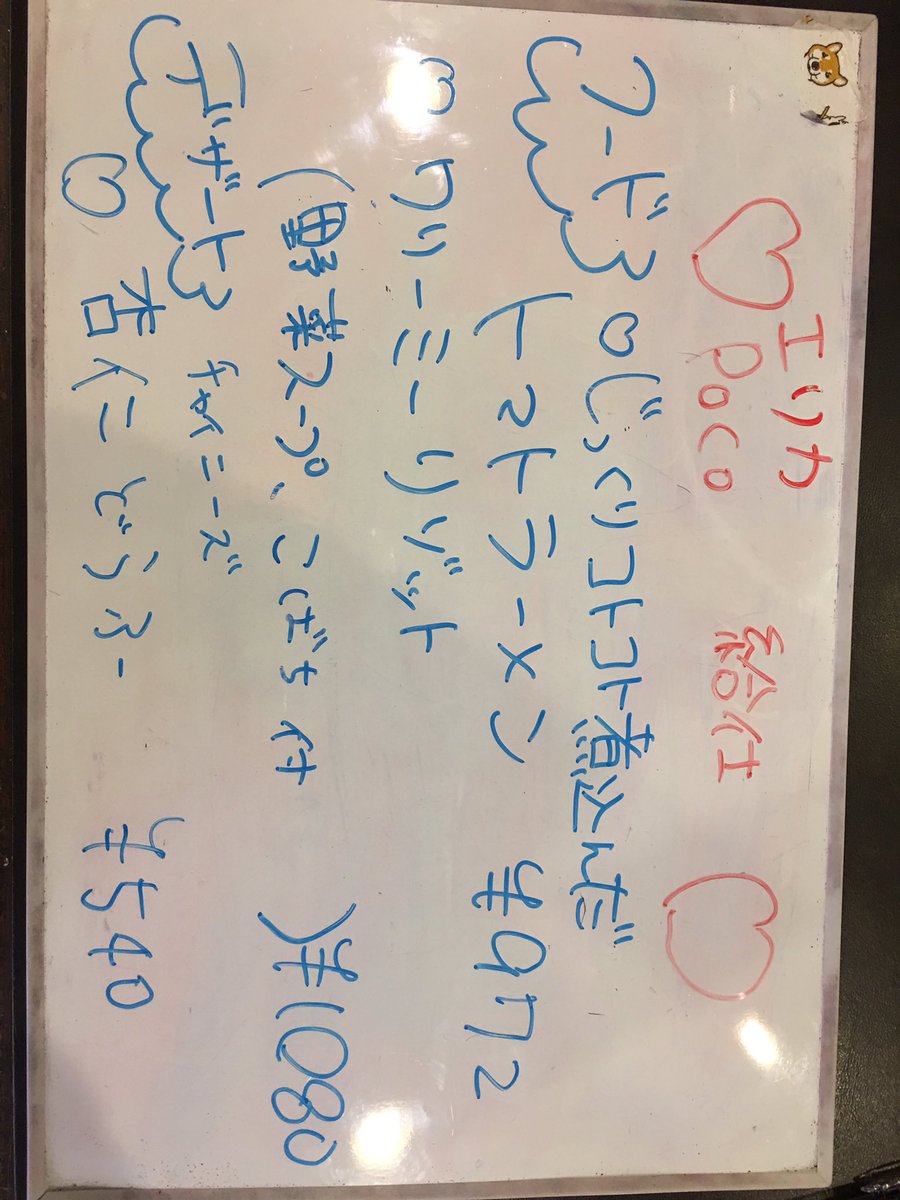 エリカ
♡ poco 給仕 ♡
フード
♡じっくりコトコト煮込んだ
トマトラーメン ¥972
♡ クリーミーリゾット
(野菜スープ、こばち付 )¥1080
デザート チャイニーズ
♡ 杏仁どうふー ¥540